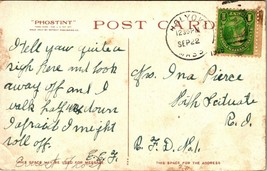 "PHOSTINT"
POST CARD
HOLYOKE
12 30 PM
SEP 22
MASS
I tell you quite a
sigh here and look
away off and I
walk half way down
I afraid I meight
roll off.
E. E. F.
Mrs. Ina Pierce
North Scituate
R. I.
R. F. D. No. 1.
THIS SPACE MAY BE USED FOR MESSAGE
THIS SPACE IS FOR THE ADDRESS